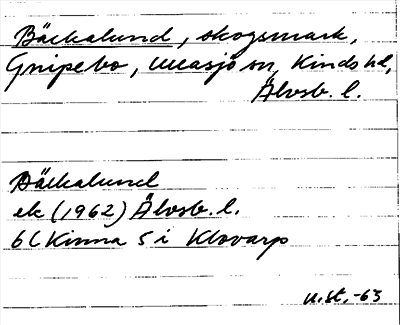 Bäckalund, skogsmark,
Gnipebo, Ullasjö sn, Kinds hd,
Älvsb. l.
Bäckalund
ek (1962) Älvsb. l.
6C Kinna 5 i Klovarp
u.st. -63